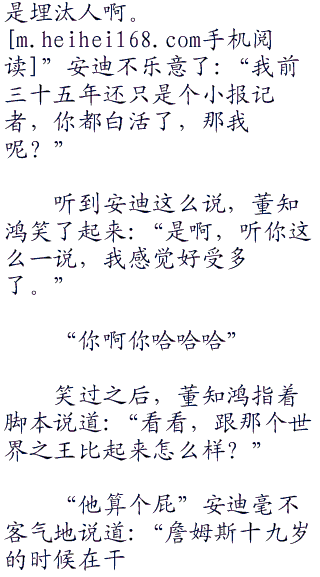 是埋汰人啊。
[m.heihei168.com手机阅
读]”安迪不乐意了：“我前
三十五年还只是个小报记
者，你都白活了，那我
呢？”
听到安迪这么说，董知
鸿笑了起来：“是啊，听你这
么一说，我感觉好受多
了。”
“你啊你哈哈哈”
笑过之后，董知鸿指着
脚本说道：“看看，跟那个世
界之王比起来怎么样？”
“他算个屁”安迪毫不
客气地说道：“詹姆斯十九岁
的时候在干